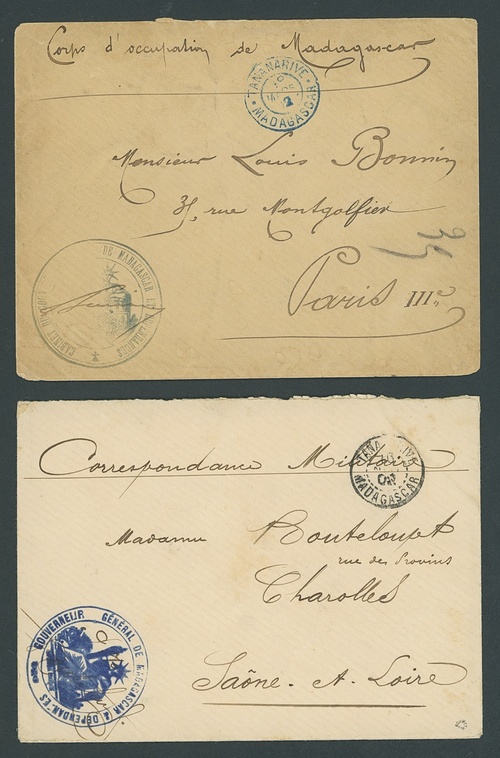 Corps d'occupation de Madagascar
TANANARIVE
MADAGASCAR
Monsieur Louis Bonnin
35, rue Montgolfier
35
Paris IIIe
DE MADAGASCAR ET
CABINET DU
Correspondance Militaire
MADAGASCAR
Madame
rue des Provins
Charolles
GOUVERNEUR GÉNÉRAL DE MADAGASCAR & DÉPENDANCES
Saône-et-Loire